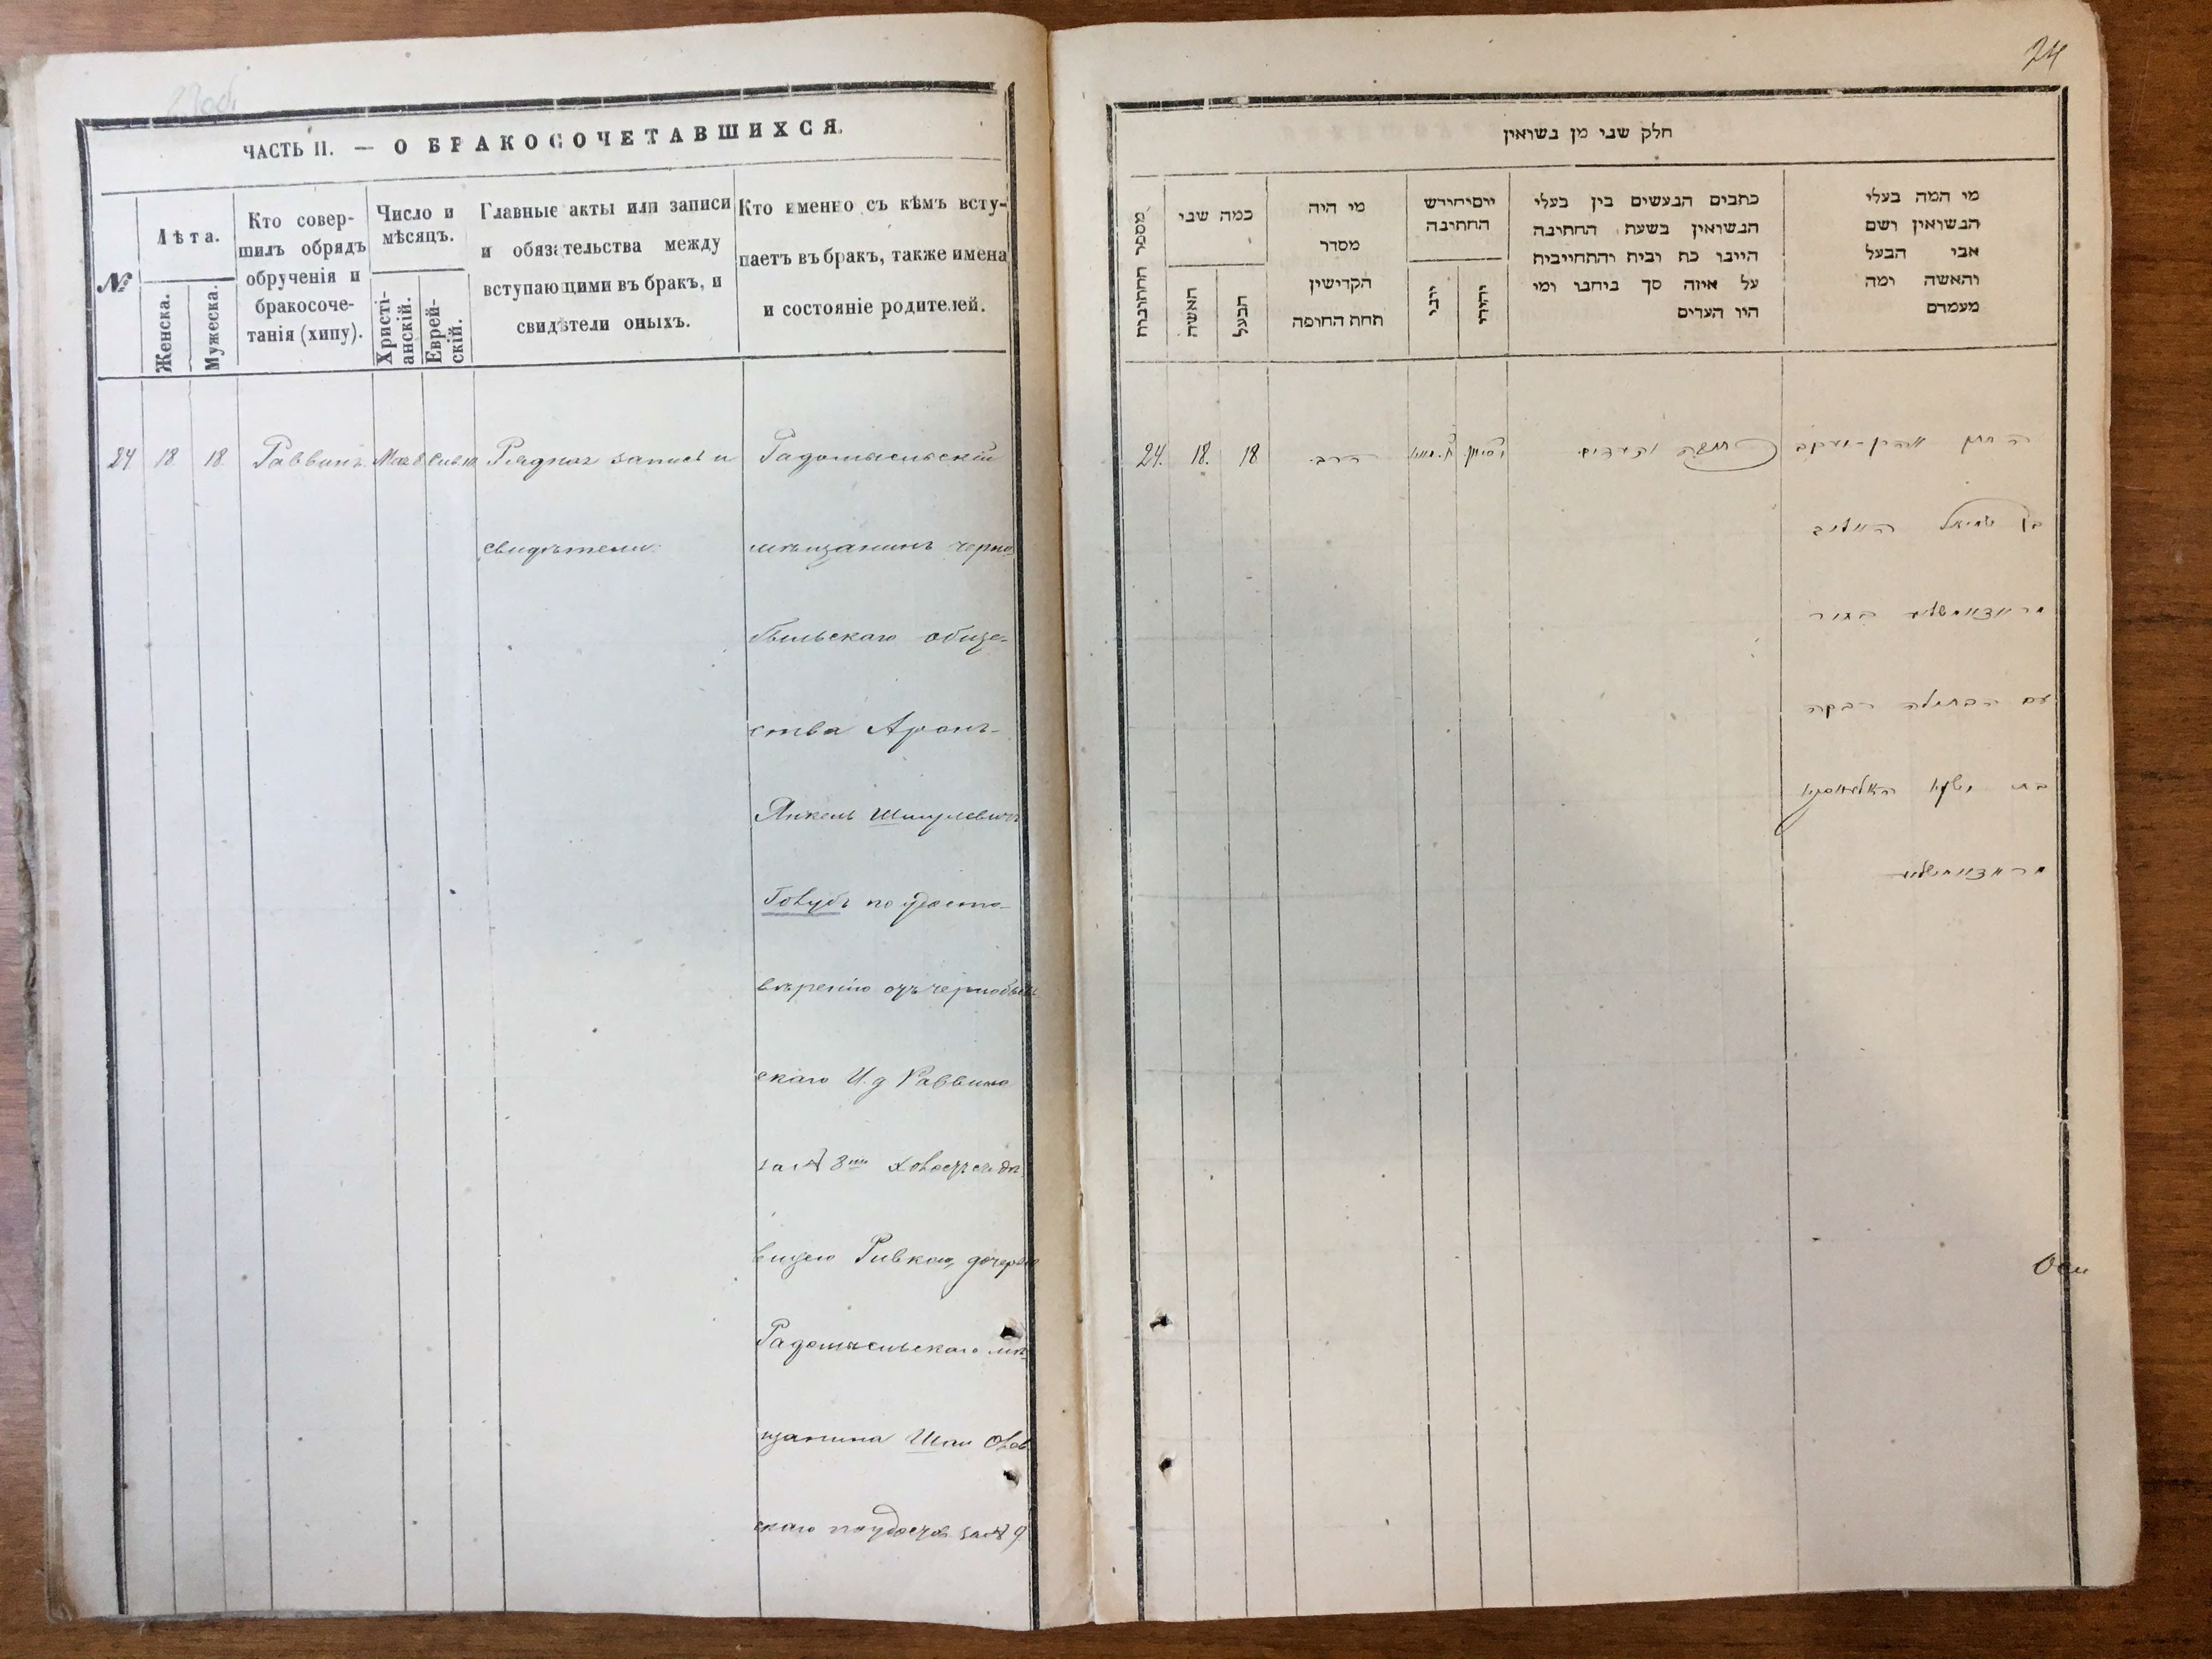 24
ЧАСТЬ II. — О БРАКОСОЧЕТАВШИХСЯ.
№
Лѣта.
Женска.
Мужеска.
Кто совер-
шилъ обрядъ
обрученія и
бракосоче-
танія (хипу).
Число и
мѣсяцъ.
Христі-
анскій.
Еврей-
скій.
Главные акты или записи
и обязательства между
вступающими въ бракъ, и
свидѣтели оныхъ.
Кто именно съ кѣмъ всту-
паетъ въ бракъ, также имена
и состояніе родителей.
24 18 18. Раввинъ Рядная запись и Радомысльскій
свидѣтели мѣщанинъ черно
быльскаго обще-
ства Аронъ-
Янкель Шмулевичъ
Голубъ по удосто-
вѣренію
скаго И.д Раввина
за № 8
вицею Ривкою, дочерью
Радомысльскаго мѣ
щанина Шаи
скаго за № 9
חלק שני מן נשואין
מספר החתובות
כמה שני
האשה
הבעל
מי היה
מסדר
הקדישין
תחת החופה
יום וחודש
החתובה
יוני
יהודי
כתבים הנעשים בין בעלי
הנשואין בשעת החתובה
היינו כח ובית והתחייבית
על איזה סך ביחבו ומי
היו העדים
מי המה בעלי
הנשואין ושם
אבי הבעל
והאשה ומה
מעמדם
24. 18. 18 הרב כתובה ועדים החתן אהרן-יעקב
בן שמואל
בחור
עם הבתולה רבקה
בת ישעי'